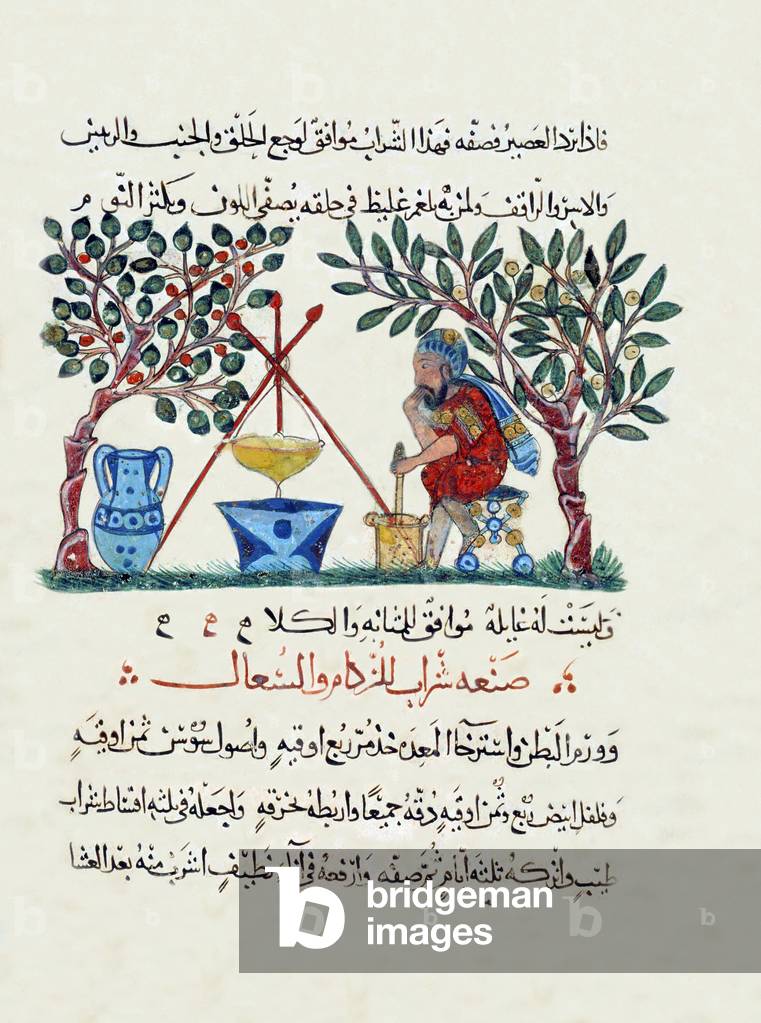 فاذا برد العصير فصفه فهذا الشراب موافق لوجع الحلق والجنب والريش
والاسر والراقف ولمن به بلغم غليظ في حلقه يصفي اللون ويكثر النوم
وليست له غايله موافق للمثانه والكلا
صنعه شراب للزكام والسعال
وورم البطن واسترخا المعده خذ مر ربع اوقيه واصول سوسن ثمن اوقيه
وفلفل ابيض ربع وثمن اوقيه دقه جميعا واربطه بخرقه واجعله في ثلثه اقساط شراب
طيب واتركه ثلثه ايام ثم صفه وارفعه في اناء نظيف اشرب منه بعد العشا
bridgeman
images